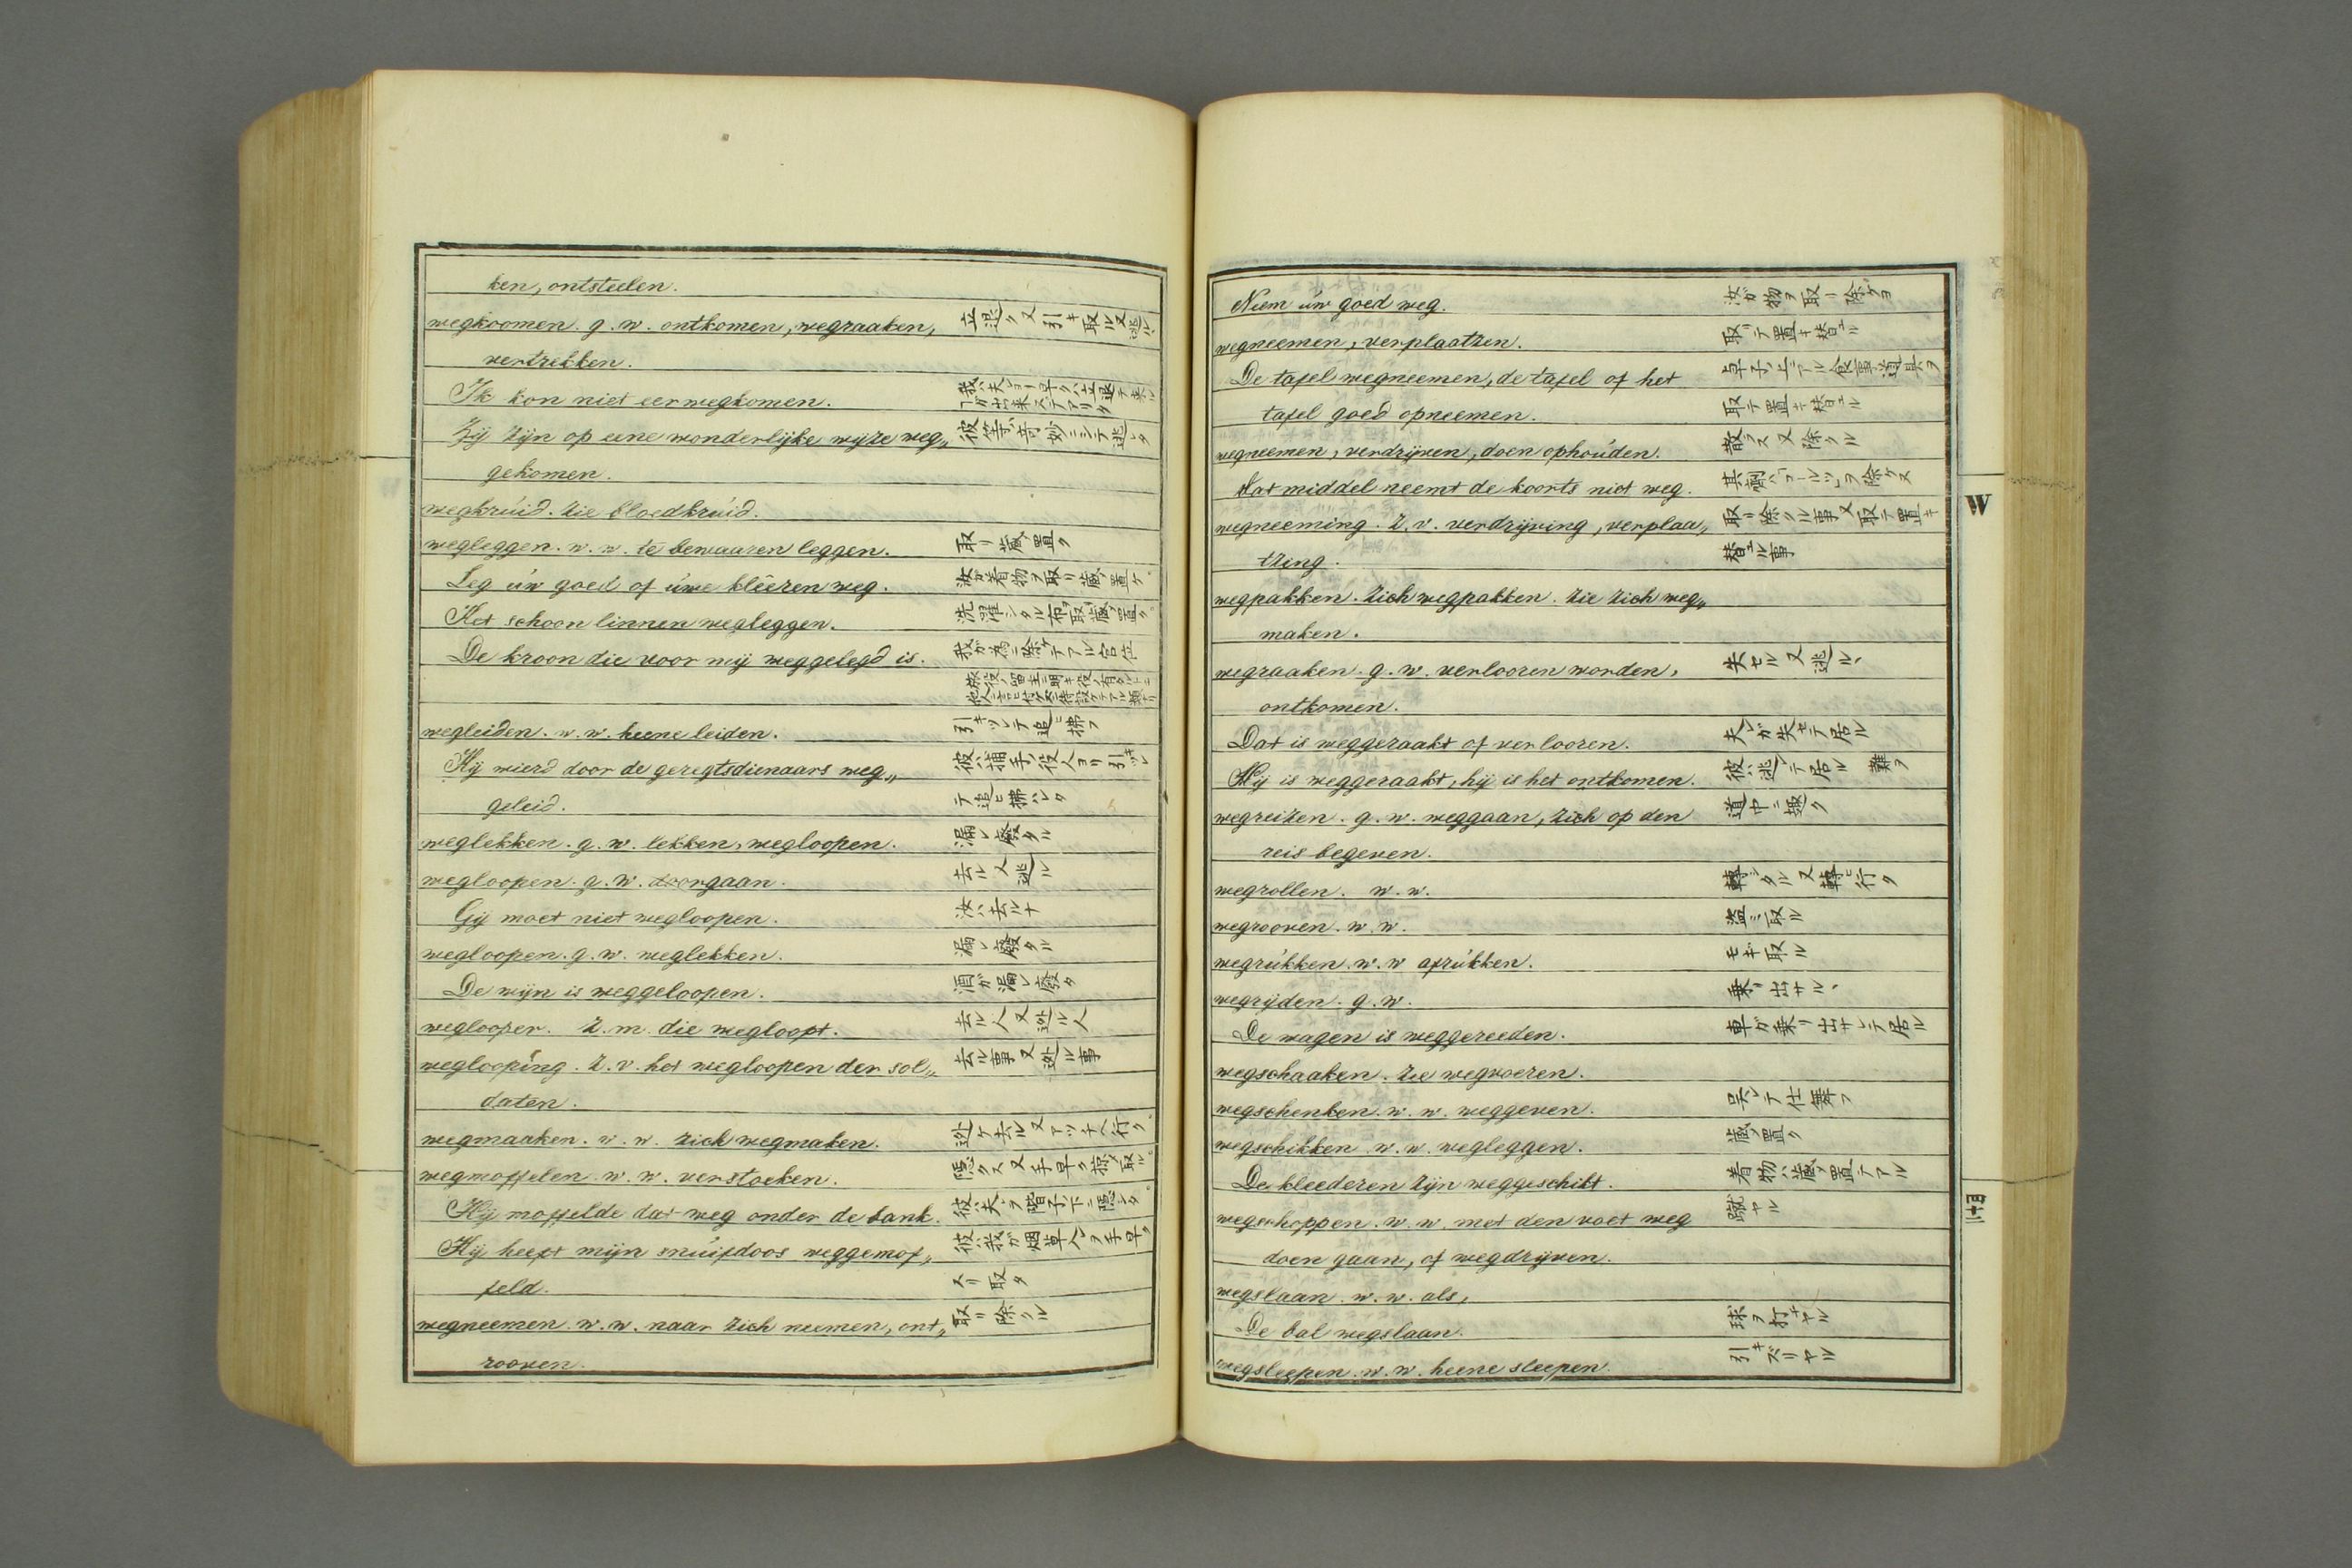 ken, ontsteelen.
wegkoomen. g. w. ontkomen, wegraaken, 立退ク又引キ取ル又逃ル
vertrekken.
Ik kon niet eer wegkomen.
Zij zijn op eene wonderlijke wyze weg„ 彼等ガ奇妙ニシテ逃レタ
gekomen.
wegkruid. zie bloedkruid.
wegleggen. w. w. te bewaaren leggen. 取リ蔵置ク
Leg úw goed of úwe kleêren weg. 汝ガ着物ヲ取リ蔵置ケ
Het schoon linnen wegleggen. 洗濯シタル布ヲ取リ蔵置ク
De kroon die voor mij weggelegd is. 我ガ為ニ除ケテアル官位
wegleiden. w. w. heene leiden. 引キツレテ追ヒ拂フ
Hij wierd door de geregtsdienaars weg„ 彼ハ捕手ノ役人ヨリ引キツレ
geleid. テ追ヒ拂ハレタ
weglekken. g. w. lekken, wegloopen. 漏レ廢タル
wegloopen. g. w. doorgaan. 去ル又逃ル
Gij moet niet wegloopen. 汝ハ去ルナ
wegloopen. g. w. weglekken. 漏レ廢タル
De wijn is weggeloopen. 酒ガ漏レ廢タ
weglooper. z. m. die wegloopt. 去ル人又逃ル人
weglooping. z. v. het wegloopen der sol„ 去ル事又逃ル事
daten.
wegmaaken. w. w. zich wegmaken. 逃ケ去ル又アッチヘ行ク
wegmoffelen. w. w. verstoeken. 隠クス又手早ク掠メ取ル
Hij moffelde dat weg onder de bank. 彼ハ夫レヲ階子ノ下ニ隠シタ
Hij heeft mijn snúifdoos weggemof„ 彼ハ我ガ烟草入レヲ手早ク
feld. スリ取タ
wegneemen. w. w. naar zich neemen, ont„ 取リ除クル
rooven.
Neem úw goed weg. 汝ガ物ヲ取リ除ケヨ
wegneemen, verplaatzen. 取リテ置キ替エル
De tafel wegneemen, de tafel of het 卓子ノ上ニアル食事道具ヲ
tafel goed opneemen. 取テ置キ替エル
wegneemen, verdrijven, doen ophoúden. 散ラス又除クル
Dat middel neemt de koorts niet weg. 其劑ハコールツヲ除ケヌ
wegneeming. z. v. verdrijving, verplaa„ 取リ除クル事又取テ置キ
tzing. 替エル事
wegpakken. zich wegpakken. zie zich weg„
maken.
wegraaken. g. w. verlooren worden, 失セル又逃ル
ontkomen.
Dat is weggeraakt of verlooren. 夫レガ失セテ居ル
Hij is weggeraakt, hij is het ontkomen. 彼ハ逃レテ居ル 難ヲ
wegreizen. g. w. weggaan, zich op den 道中ニ趣ク
reis begeven.
wegrollen. w. w. 轉シタル又轉ビ行ク
wegrooven. w. w. 盗ミ取ル
wegrúkken. w. w. afrúkken. モギ取ル
wegrijden. g. w. 乗リ出サル
De wagen is weggereeden. 車ガ乗リ出サレテ居ル
wegschaaken. zie wegvoeren.
wegschenken. w. w. weggeven. 呉レテ仕舞フ
wegschikken. w. w. wegleggen. 蔵メ置ク
De kleederen zijn weggeschikt. 着物ハ蔵メ置テアル
wegschoppen. w. w. met den voet weg 蹴ヤル
doen gaan, of wegdrijven.
wegslaan. w. w. als,
De bal wegslaan. 球ヲ打チヤル
wegsleepen. w. w. heene sleepen. 引キズリヤル
W